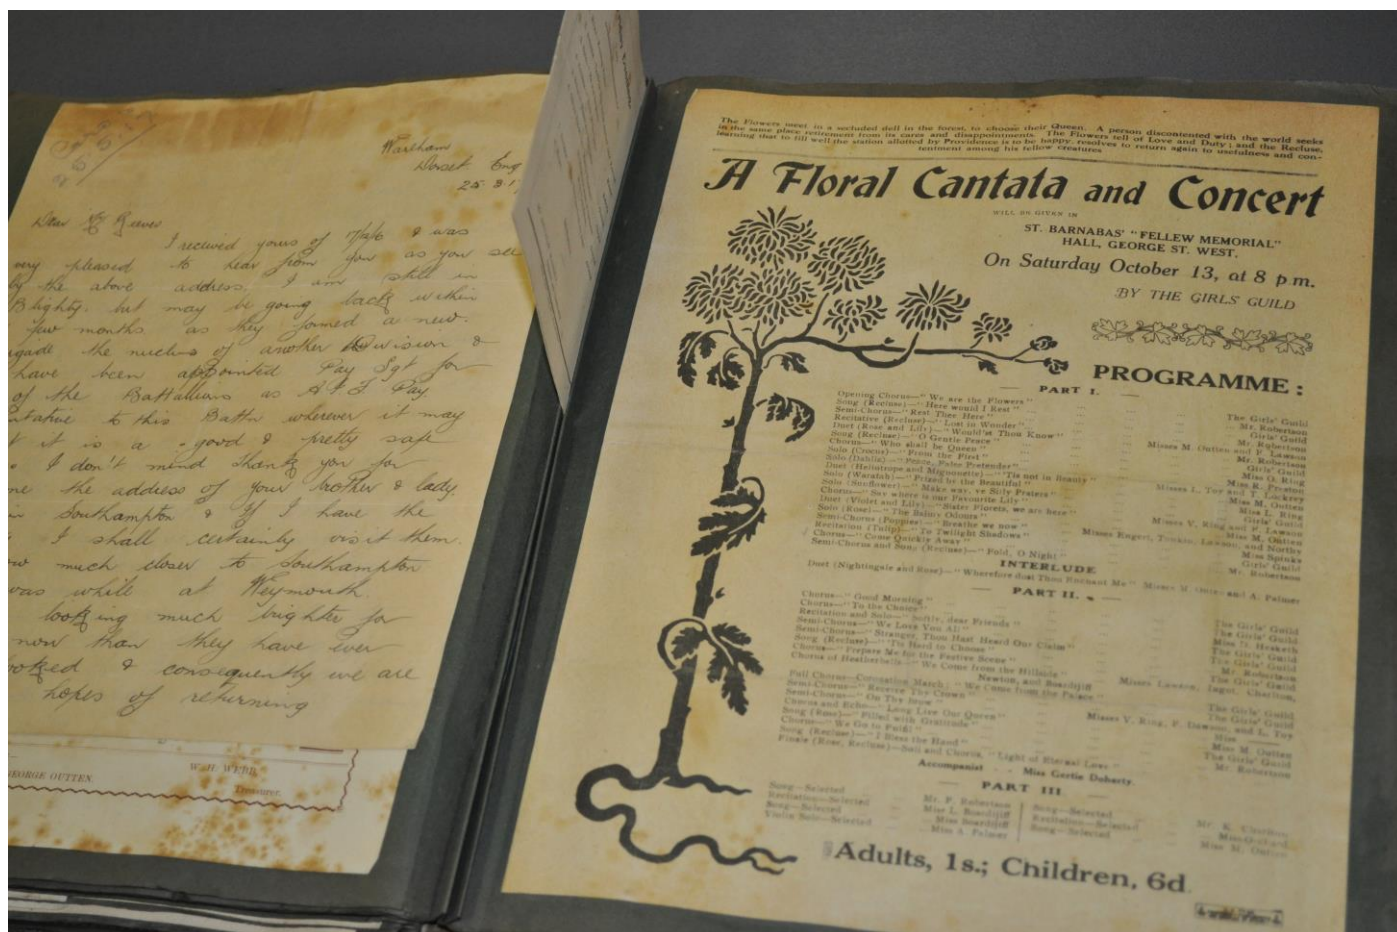 Wareham
Dorset Eng
25.3.1
Dear Mr Reeves
I received yours of & was
very pleased to hear from you as you see
by the above address, I am still in
Blighty, but may be going back within
few months as they formed a new
igade the nucleus of another Division &
have been appointed Pay Sgt for
of the Battallions as A I F Pay
ntative to this Battn wherever it may
t it is a good & pretty safe
I don't mind thank you for
me the address of your brother & lady
in Southampton & if I have the
I shall certainly visit them.
ow much closer to Southampton
was while at Weymouth.
looking much brighter for
now than they have ever
ooked & consequently we are
hopes of returning
GEORGE OUTTEN.
W. H. WEBB,
Treasurer.
The Flowers meet in a secluded dell in the forest, to choose their Queen. A person discontented with the world seeks
in the same place retirement from its cares and disappointments. The Flowers tell of Love and Duty; and the Recluse,
learning that to fill well the station allotted by Providence is to be happy, resolves to return again to usefulness and con-
tentment among his fellow creatures
A Floral Cantata and Concert
WILL BE GIVEN IN
ST. BARNABAS' "FELLEW MEMORIAL"
HALL, GEORGE ST. WEST,
On Saturday October 13, at 8 p.m.
BY THE GIRLS GUILD
PROGRAMME:
PART I.
Opening Chorus—"We are the Flowers" The Girls' Guild
Song (Recluse)—"Here would I Rest" Mr. Robertson
Semi-Chorus—"Rest Thee Here" Girls' Guild
Recitative (Recluse)—"Lost in Wonder" Mr. Robertson
Duet (Rose and Lily)—"Would'st Thou Know" Misses M. Outten and P. Lawson
Song (Recluse)—"O Gentle Peace" Mr. Robertson
Chorus—"Who shall be Queen" Girls' Guild
Solo (Crocus)—"From the First" Miss O. Ring
Solo (Dahlia)—"Peace, False Pretender" Miss R. Preston
Duet (Heliotrope and Mignonette)—"'Tis not in Beauty" Misses L. Toy and T. Lockrey
Solo (Waratah)—"Prized by the Beautiful" Miss M. Outten
Solo (Sunflower)—"Make way, ye Silly Praters" Miss L. Ring
Chorus—"Say where is our Favourite Lily" Girls' Guild
Duet (Violet and Lily)—"Sister Florets, we are here" Misses V. Ring and P. Lawson
Solo (Rose)—"The Balmy Odours" Miss M. Outten
Semi-Chorus (Poppies)—"Breathe we now" Misses Engert, Tonkin, Lawson, and Northy
Recitation (Tulip)—"To Twilight Shadows" Miss Spinks
Chorus—"Come Quickly Away" Girls' Guild
Semi-Chorus and Song, (Recluse)—"Fold, O Night" Mr. Robertson
INTERLUDE
Duet (Nightingale and Rose)—"Wherefore dost Thou Enchant Me" Misses and A. Palmer
PART II.
Chorus—"Good Morning" The Girls' Guild
Chorus—"To the Choice" The Girls' Guild
Recitation and Solo—"Softly, dear Friends" Miss Hesketh
Semi-Chorus—"We Love You All" The Girls' Guild
Semi-Chorus—"Stranger, Thou Hast Heard Our Claim" The Girls' Guild
Song (Recluse)—"'Tis Hard to Choose" Mr. Robertson
Chorus—"Prepare Me for the Festive Scene" The Girls' Guild
Chorus of Heatherbells—"We Come from the Hillside" Misses Lawson, Charlton,
Newton, and Boardijff
Full Chorus—Coronation March: "We Come from the Palace" The Girls' Guild
Semi-Chorus—"Receive The Crown" The Girls' Guild
Semi-Chorus—"On Thy Brow" Misses V. Ring, P. Dawson, and L. Toy
Chorus and Echo—"Long Live Our Queen" Miss
Song (Rose)—"Filled with Gratitude" Miss M. Outten
Chorus—"We Go to Fulfil" The Girls' Guild
Song (Recluse)—"I Bless the Hand" Mr. Robertson
Finale (Rose, Recluse)—Soli and Chorus, "Light of Eternal Love"
Accompanist Miss Gertie Doharty.
PART III.
Song—Selected Mr. P. Robertson
Recitation—Selected Miss L. Boardijff
Song—Selected Miss Boardijff
Violin Solo—Selected Miss A. Palmer
Song—Selected Mr. K. Charlton
Recitation—Selected
Song—Selected Miss M. Outten
Adults, 1s.; Children, 6d.